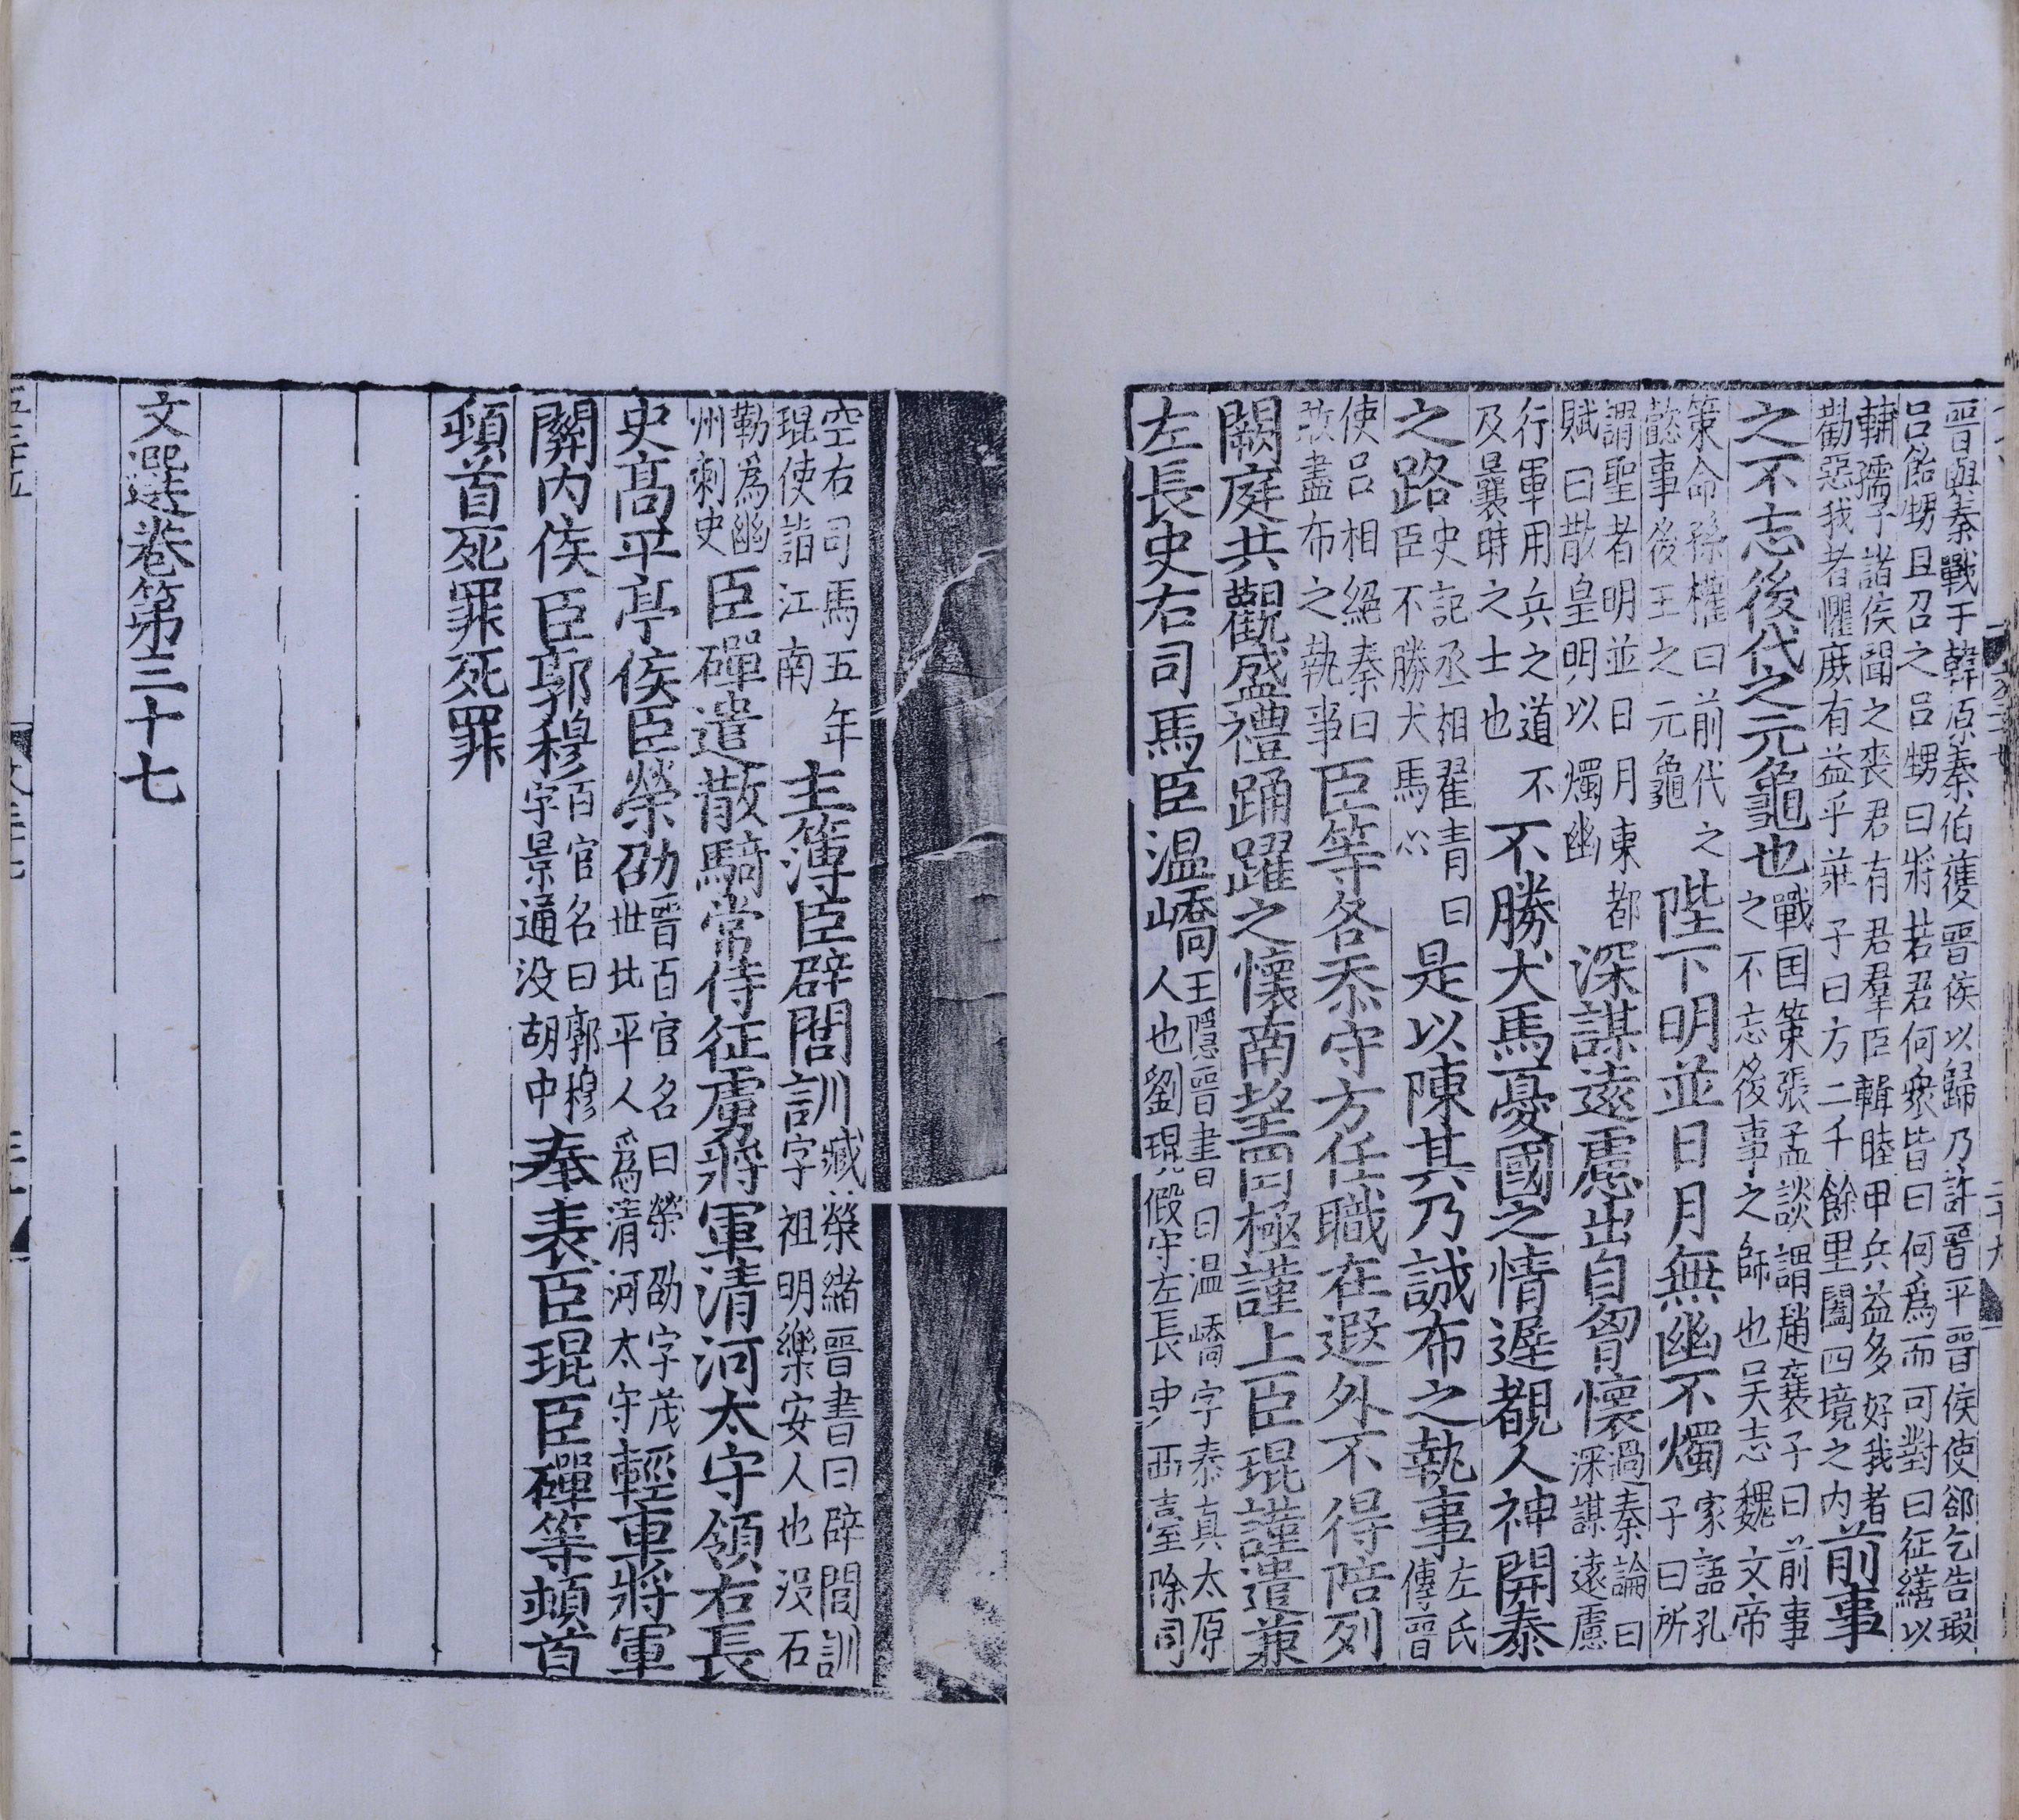 晉與秦戰于韓原秦伯獲晉侯以歸乃許晉平晉侯使郤乞告瑕
呂飴甥且召之呂甥曰將若君何衆皆曰何爲而可對曰征繕以
輔孺子諸侯聞之喪君有君羣臣輯睦甲兵益多好我者
勸惡我者懼庶有益乎莊子曰方二千餘里闔四境之内
前事
之不忘後代之元龜也
戰国策張孟談謂趙襄子曰前事
之不忘後事之師也吳志魏文帝
策命孫權曰前代之
懿事後王之元龜
陛下明並日月無幽不燭
家語孔
子曰所
謂聖者明並日月東都
賦曰散皇明以燭幽
深謀遠慮出自胷懷
過秦論曰
深謀遠慮
行軍用兵之道不
及曩時之士也
不勝犬馬憂國之情遲覩人神開泰
之路
史記丞相翟青曰
臣不勝犬馬心
是以陳其乃誠布之執事
左氏
傳晉
使呂相絕秦曰
敢盡布之執事
臣等各忝守方任職在遐外不得陪列
闕庭共觀盛禮踊躍之懷南望罔極謹上臣琨謹遣兼
左長史右司馬臣温嶠
王隱晉書曰温嶠字泰真太原
人也劉琨假守左長史西臺除司
空右司馬五年
琨使詣江南
主簿臣辟閭訓
臧榮緒晉書曰辟閭訓
字祖明樂安人也没石
勒爲幽
州刺史
臣磾遣散騎常侍征虜將軍清河太守領右長
史高平亭侯臣榮劭
晉百官名曰榮劭字茂
世北平人爲清河太守
輕車將軍
關内侯臣郭穆
百官名曰郭穆
字景通没胡中
奉表臣琨臣磾等頓首
頓首死罪死罪
文選卷第三十七